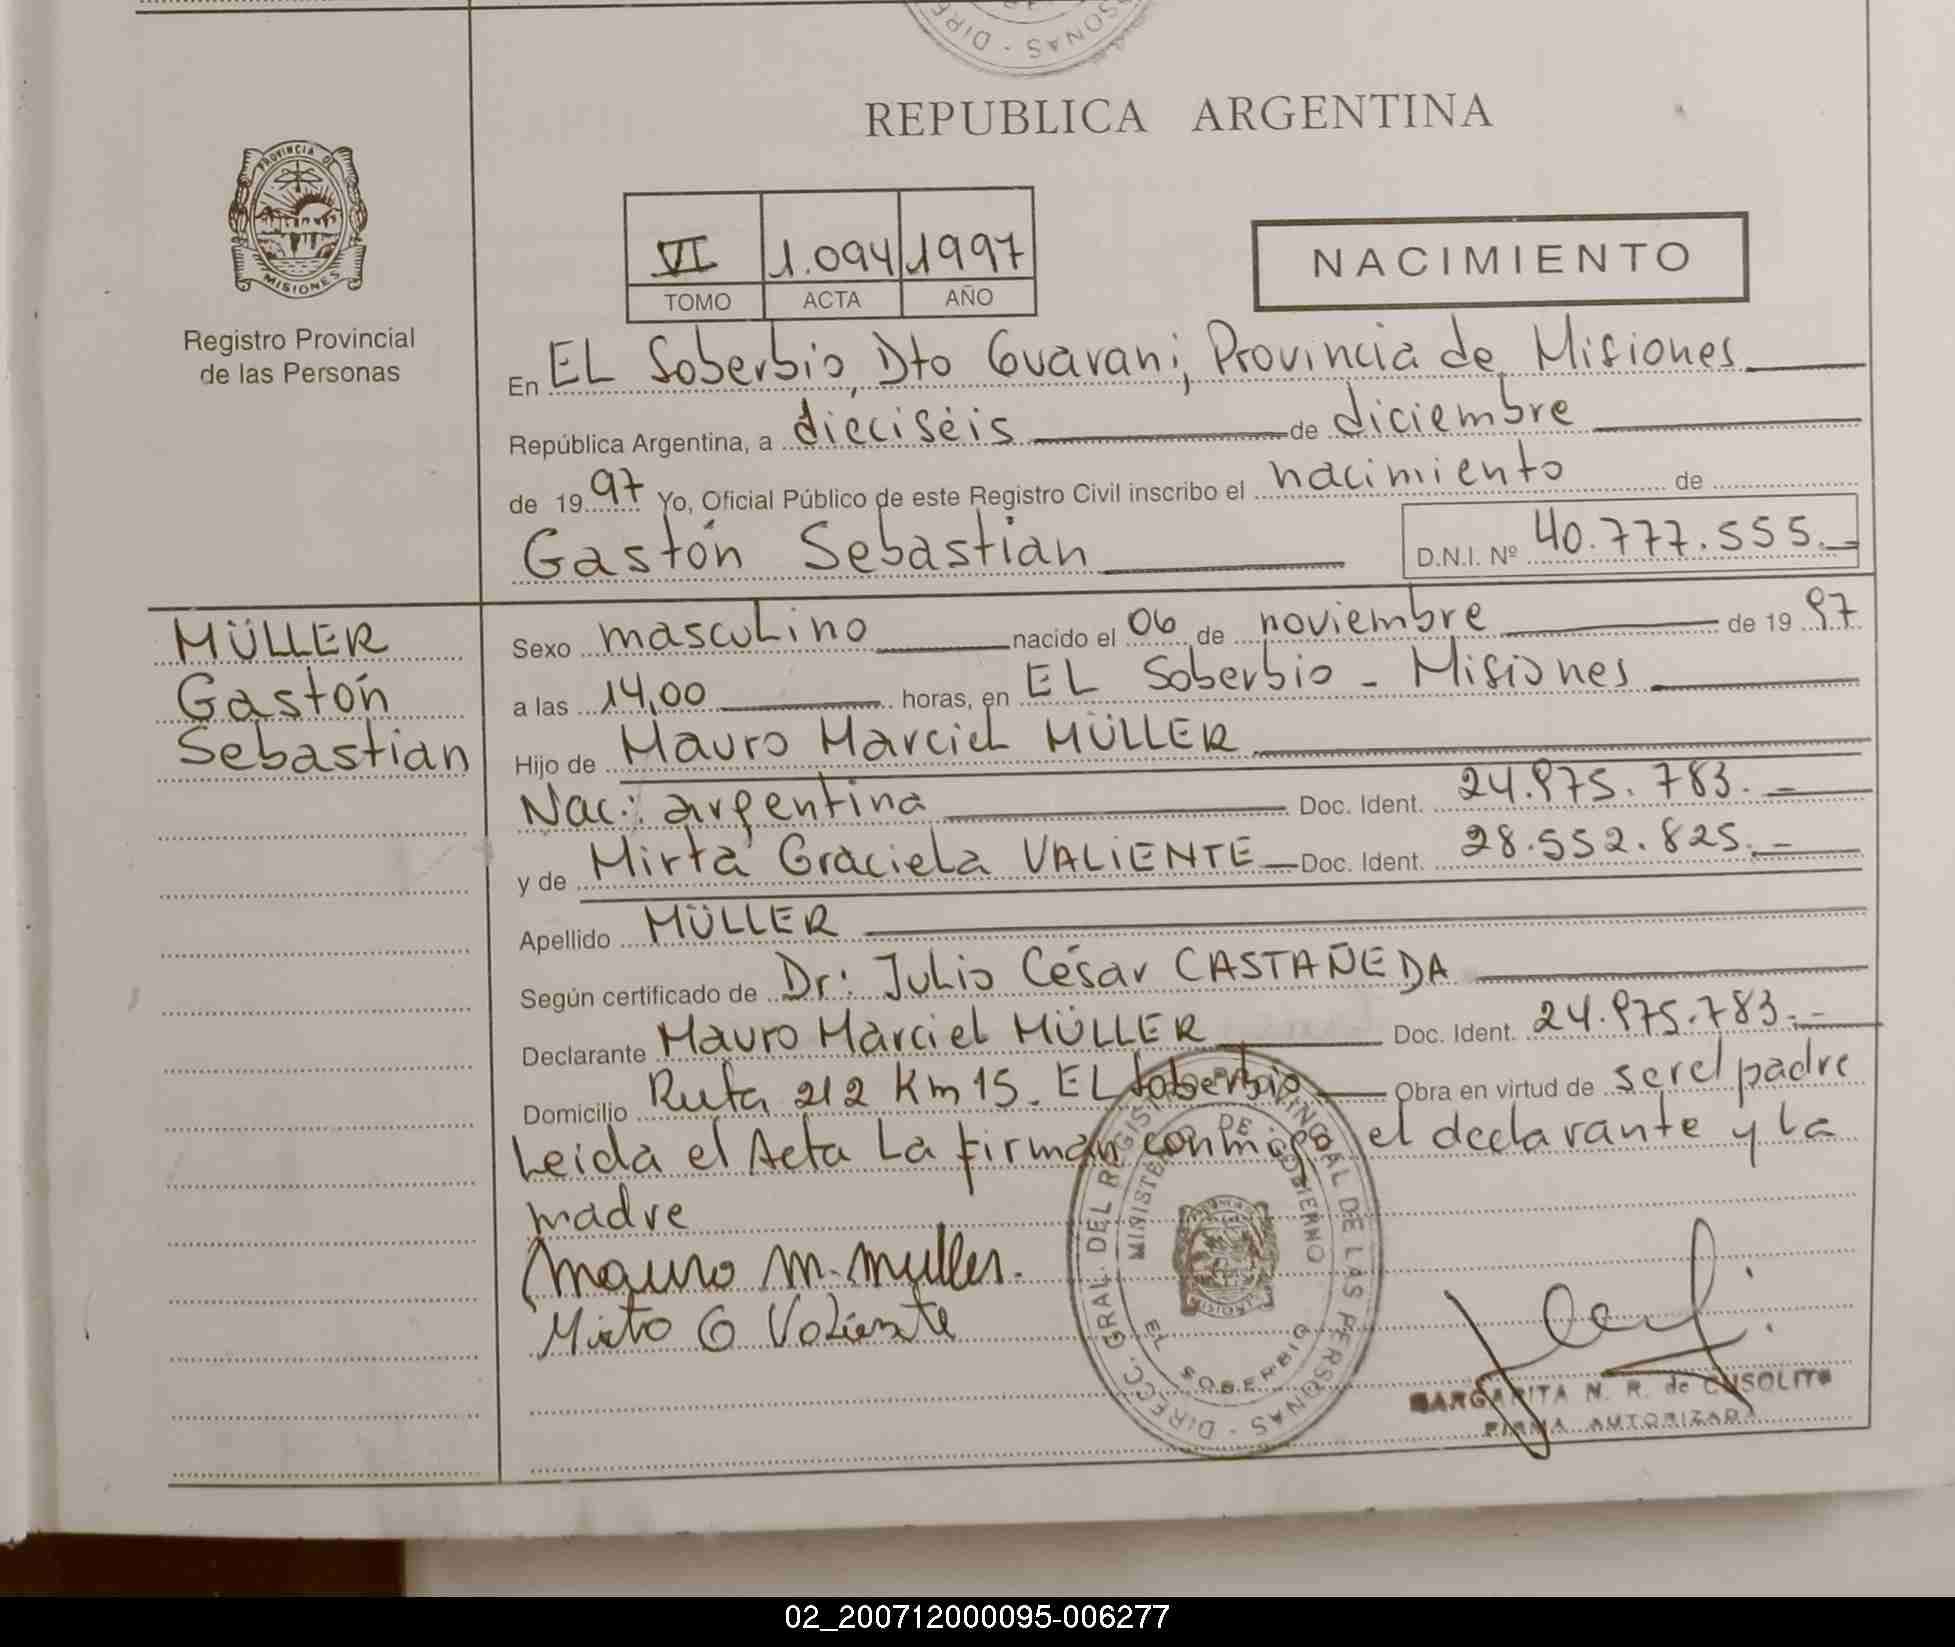 REPUBLICA ARGENTINA
PROVINCIA DE
MISIONES
Registro Provincial
de las Personas
VI 1.094 1997
TOMO ACTA AÑO
NACIMIENTO
En EL Soberbio, Dto Guaraní, Provincia de Misiones
República Argentina, a dieciséis de diciembre
de 1997 Yo, Oficial Público de este Registro Civil inscribo el nacimiento de
Gastón Sebastian D.N.I. Nº 40.777.555.-
MÜLLER
Gastón
Sebastian
Sexo masculino nacido el 06 de noviembre de 1997
a las 14,00 horas, en EL Soberbio - Misiones
Hijo de Mauro Marciel MÜLLER
Nac: argentina Doc. Ident. 24.975.783.-
y de Mirta Graciela VALIENTE Doc. Ident. 28.552.825.-
Apellido MÜLLER
Según certificado de Dr: Julio César CASTAÑEDA
Declarante Mauro Marciel MÜLLER Doc. Ident. 24.975.783.-
Domicilio Ruta 212 Km 15. EL Soberbio Obra en virtud de ser el padre
Leida el Acta La firman conmigo el declarante y la
madre
Mauro M. Muller.
Mirta G Valiente
DIRECC. GRAL. DEL REGISTRO PROVINCIAL DE LAS PERSONAS
MINISTERIO DE GOBIERNO
EL SOBERBIO
MARGARITA N. R. de CUSOLITO
FIRMA AUTORIZADA
02_200712000095-006277